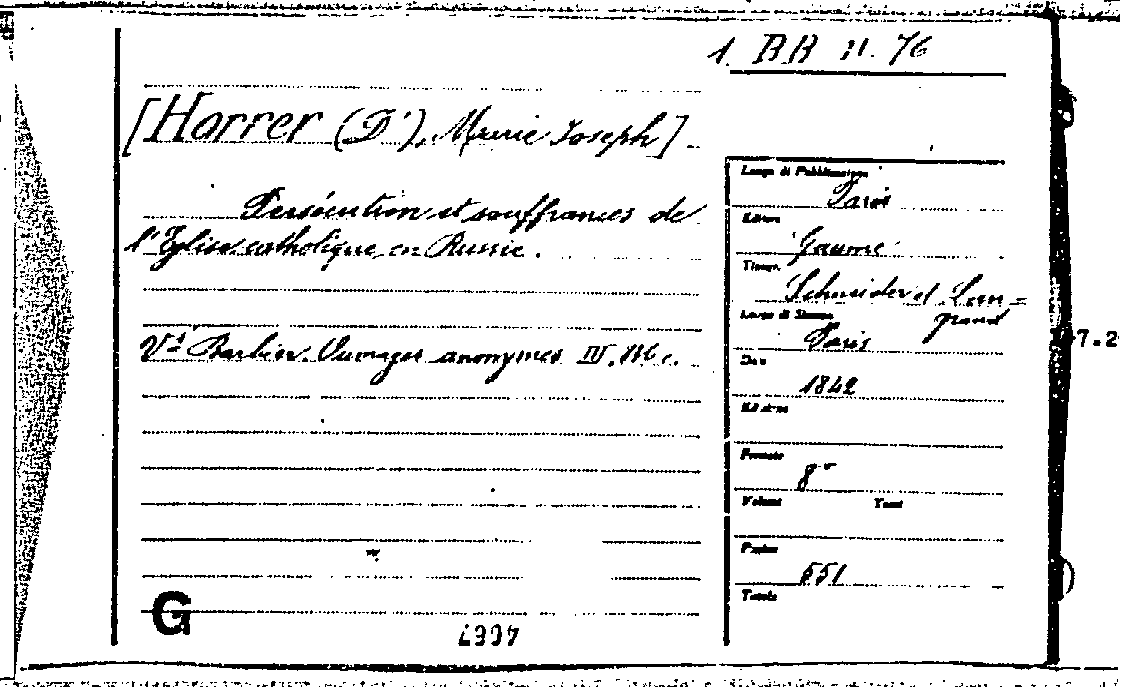 1. BB II. 76
[Horrer (D'), Marie Joseph]
Persécution et souffrances de
l'Eglise catholique en Russie.
Vd Barbier. Ouvrages anonymes IV.
Luogo di Pubblicazione
Paris
Editore
Gaume
Tipogr.
Schneider et Lan=
grand
Luogo di Stampa
Paris
Data
1842
Edizione
Formato
8°
Volumi Tomi
Pagine
551
Tavole
7.2
G